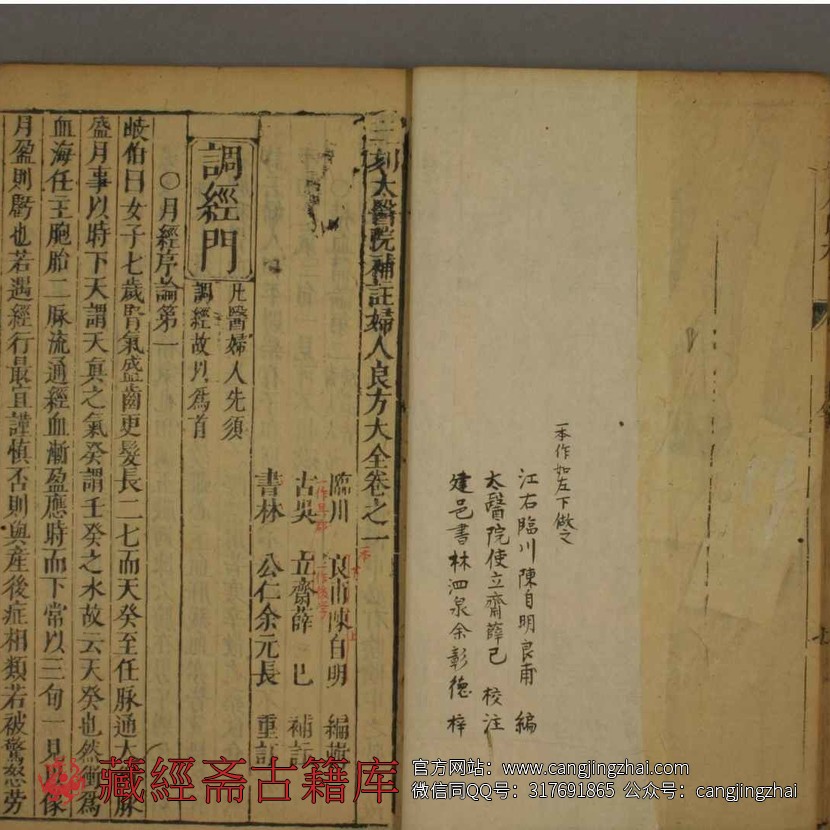 一本作如左下倣之
江右臨川陳自明良甫 編
太醫院使立齋薛己 校注
建邑書林泗泉余彰德 梓
三刻太醫院補註婦人良方大全卷之一
臨川 良甫陳自明 編輯
古吳 立齋薛 已 補註
書林 公仁余元長 重訂
調經門
凡醫婦人先須
調經故以爲首
○月經序論第一
岐伯曰女子七歲腎氣盛齒更髮長二七而天癸至任脉通太衝脉
盛月事以時下天謂天真之氣癸謂壬癸之水故云天癸也然衝爲
血海任主胞胎二脉流通經血漸盈應時而下常以三旬一見以像
月盈則虧也若遇經行最宜謹慎否則與產後症相類若被驚怒勞
藏經斋古籍库
官方网站：www.cangjingzhai.com
微信同QQ号：317691865 公众号：cangjingzhai